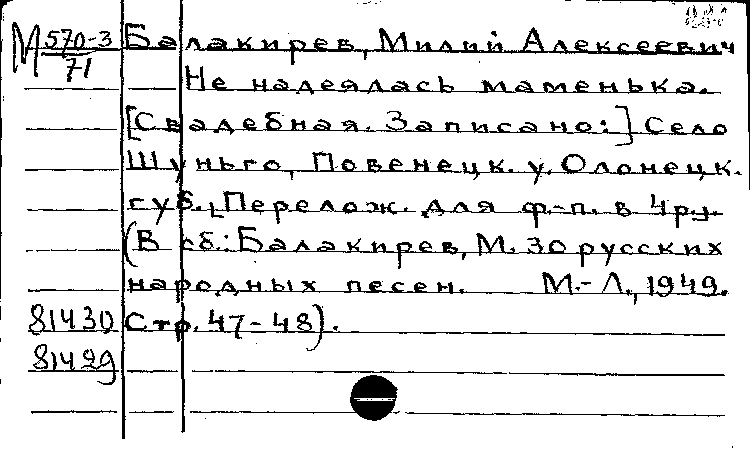 М 570-3/71 Балакирев, Милий Алексеевич
Не надеялась маменька.
[Свадебная. Записано:] Село
Шуньго, Повенецк. у. Олонецк.
губ. [Перелож. для ф.-п. в 4 р.].
(В сб.: Балакирев, М. 30 русских
народных песен. М.-Л., 1949.
81430 Стр. 47-48).
81429